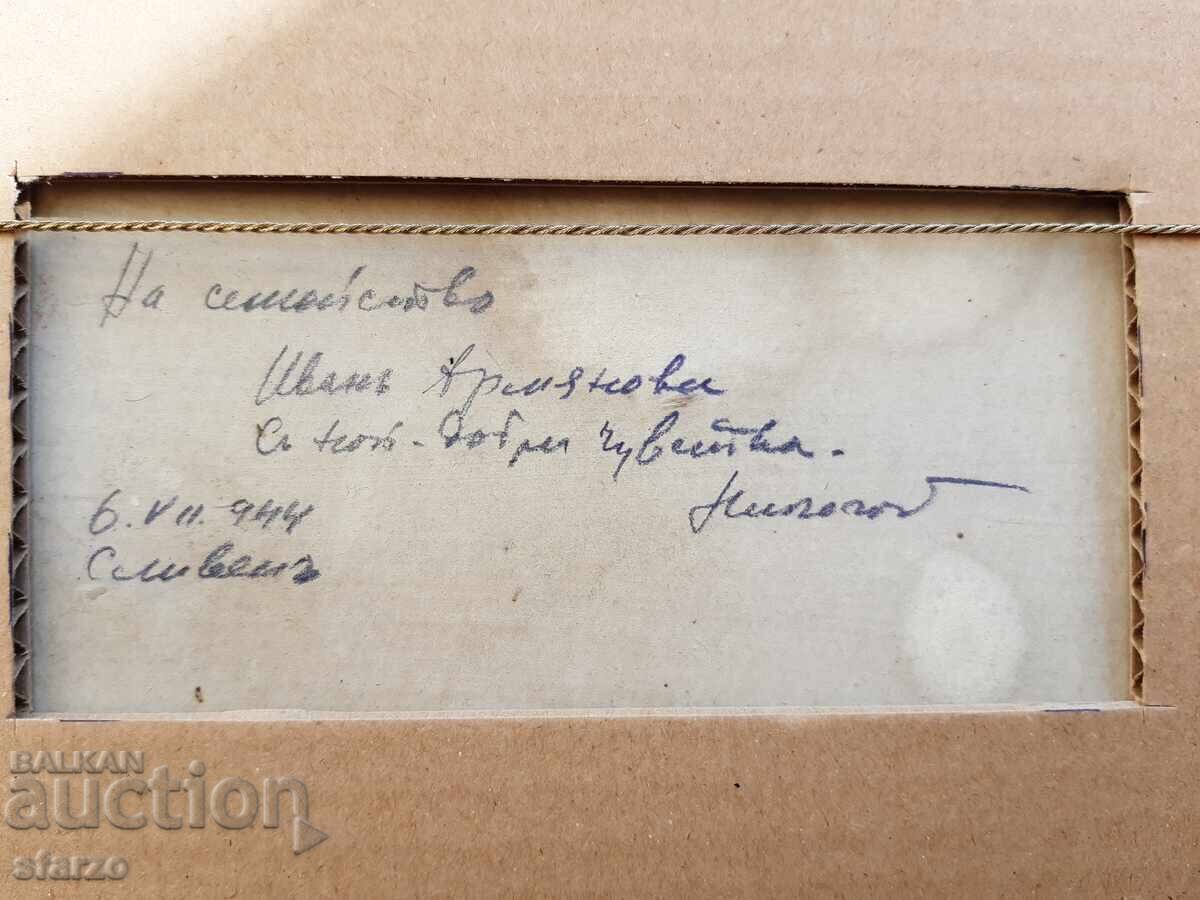 На семейство
Иванъ Армянови
Съ най-добри чувства.
6.VII.944
Сливенъ
BALKAN
auction
sfarzo